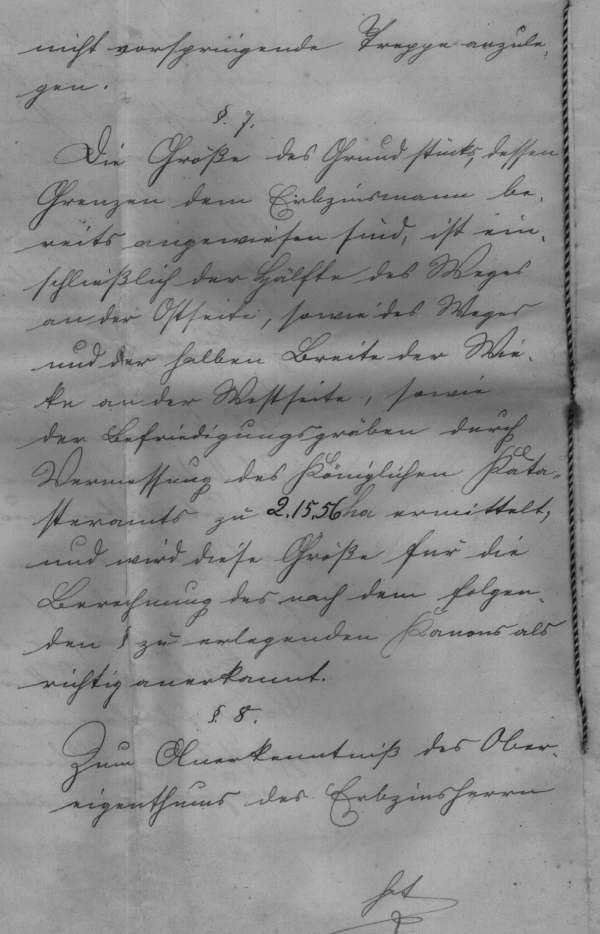 nicht vorspringende Treppe anzule-
gen.
§. 7.
Die Größe des Grundstücks, dessen
Grenzen dem Erbzinsmann be-
reits angewiesen sind, ist ein-
schließlich der Hälfte des Weges
an der Ostseite, sowie des Weges
und der halben Breite der Wie-
ke an der Westseite, sowie
der Befriedigungsgräben durch
Vermessung des Königlichen Kata-
steramts zu 2.15.56 ha ermittelt,
und wird diese Größe für die
Berechnung des nach dem folgen-
den § zu erlegenden Kanons als
richtig anerkannt.
§. 8.
Zum Anerkenntniß des Ober-
eigenthums des Erbzinsherrn
hat